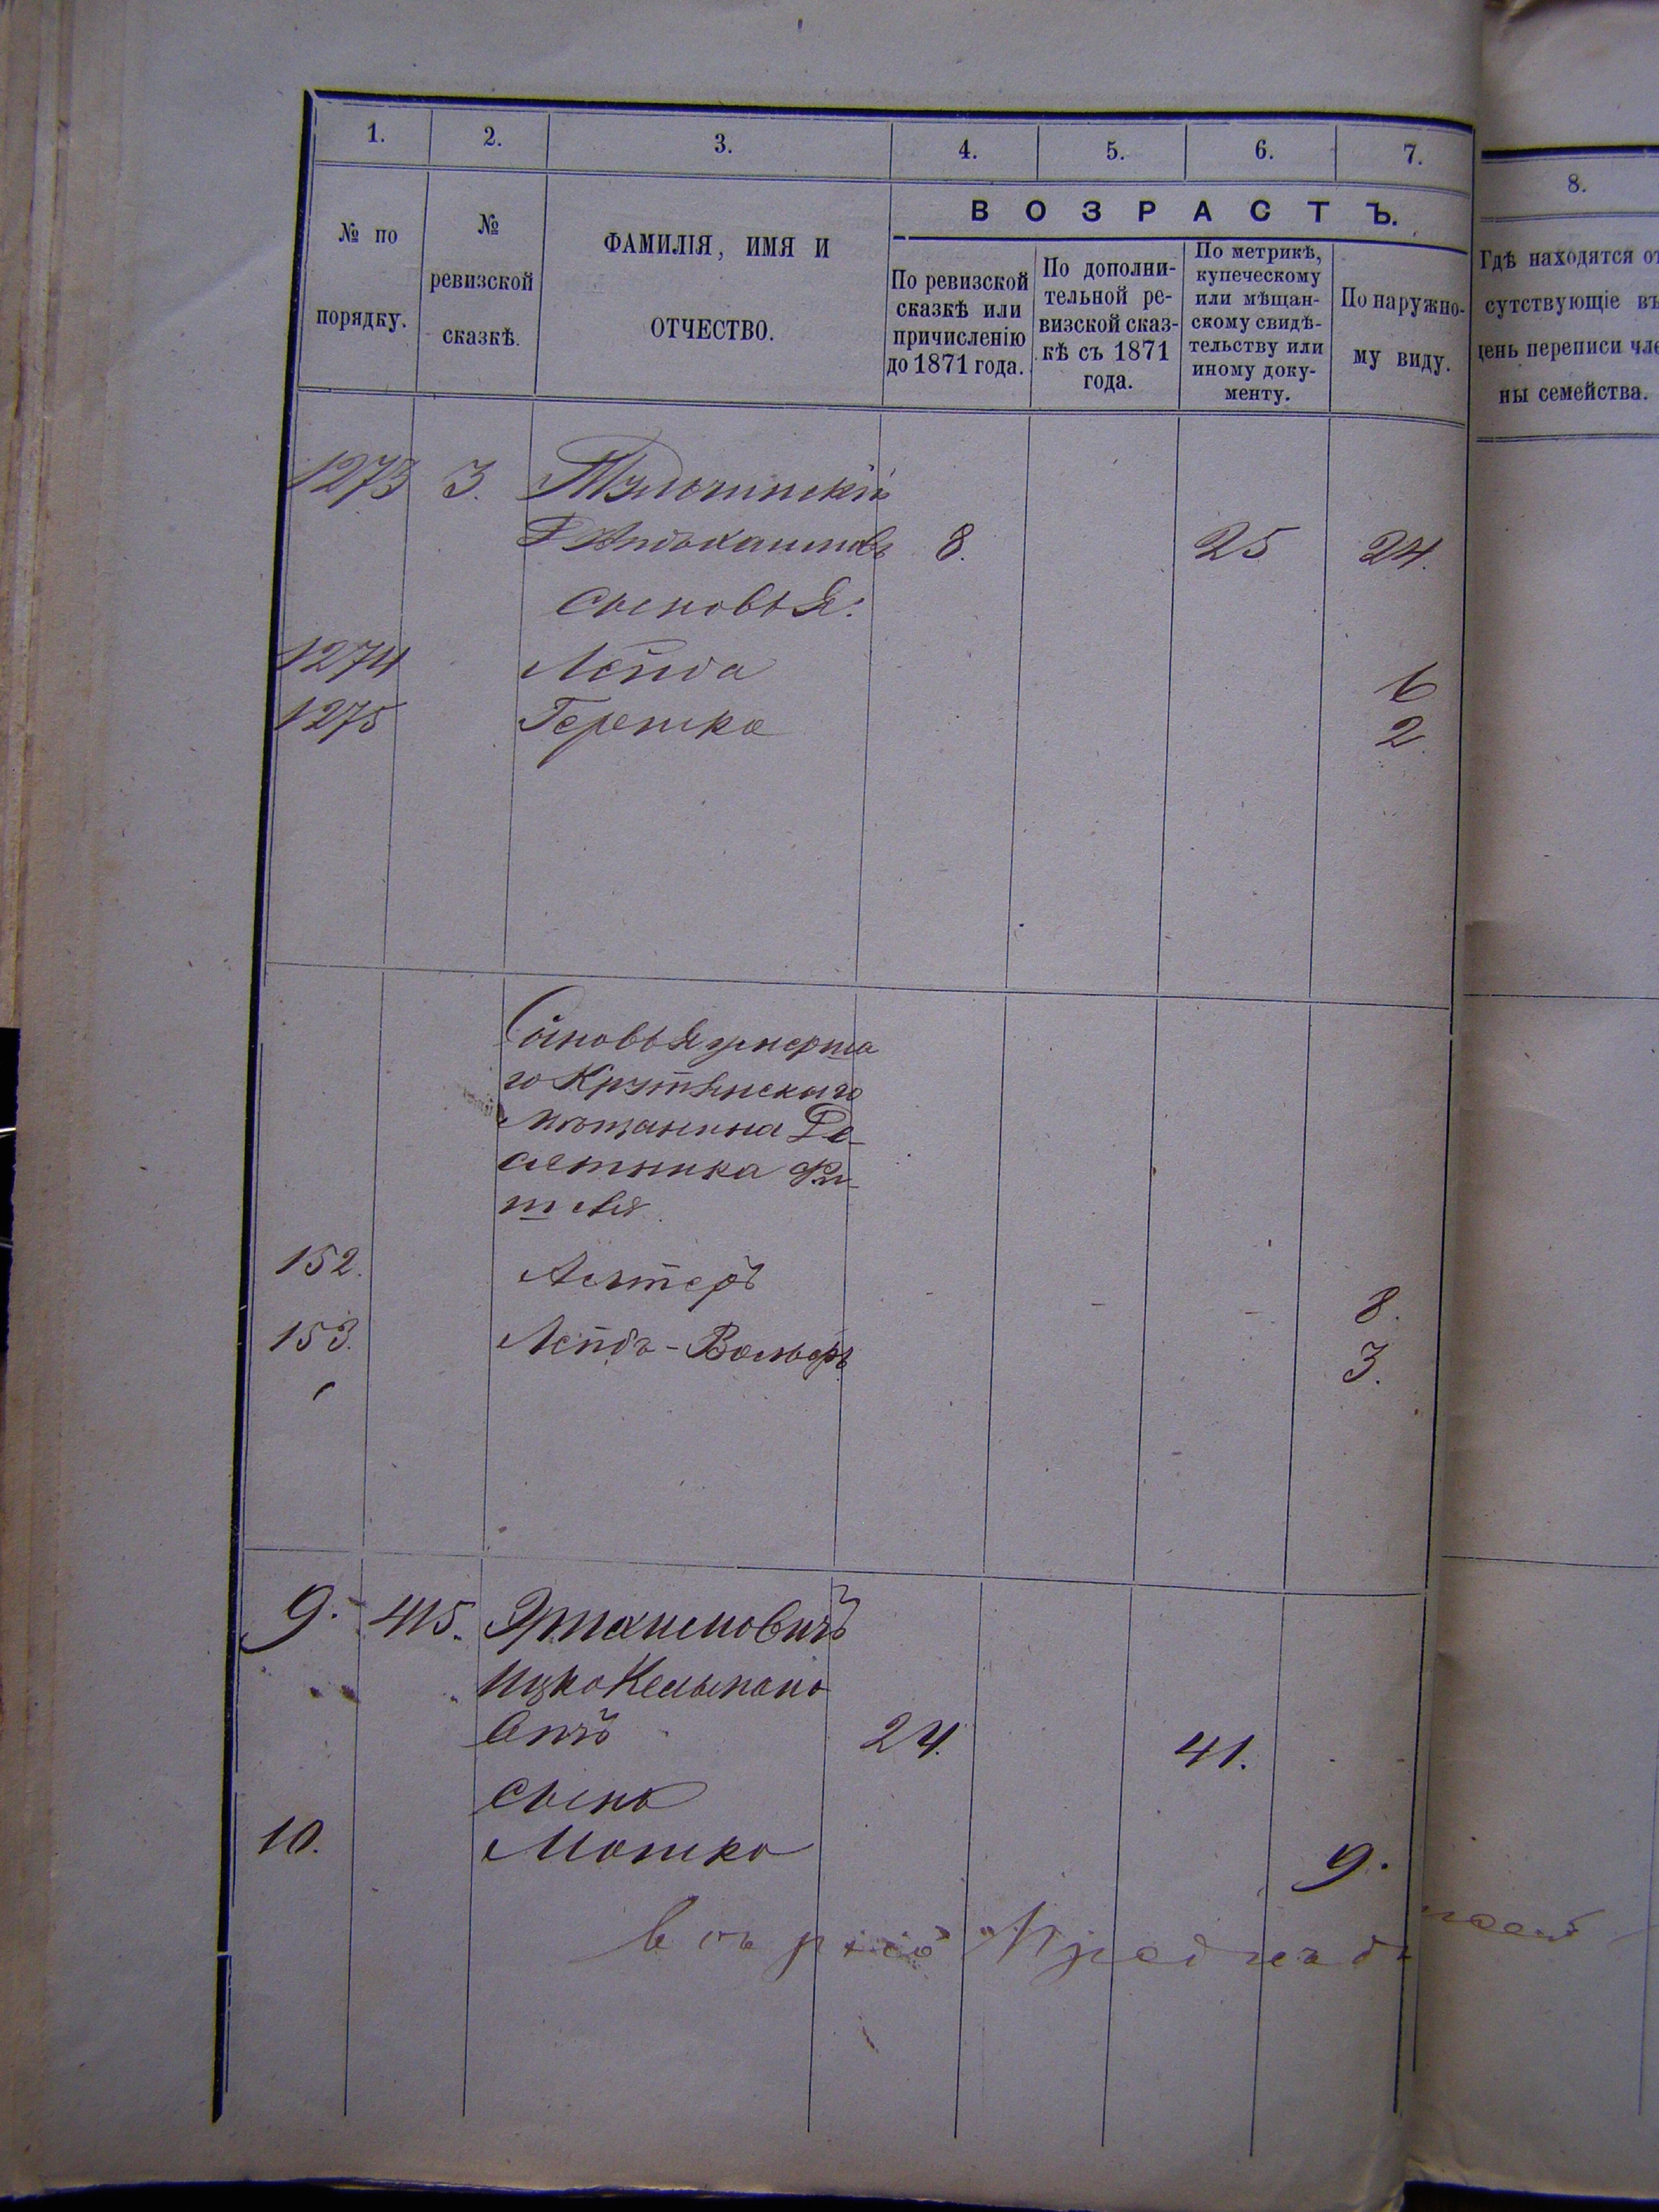 1. 2. 3. 4. 5. 6. 7.
8.
№ по порядку.
№ ревизской сказкѣ.
ФАМИЛІЯ, ИМЯ И
ОТЧЕСТВО.
ВОЗРАСТЪ.
По ревизской
сказкѣ или
причисленію
до 1871 года.
По дополни-
тельной ре-
визской сказ-
кѣ съ 1871
года.
По метрикѣ,
купеческому
или мѣщан-
скому свидѣ-
тельству или
иному доку-
менту.
По наружно-
му виду.
Гдѣ находятся от
сутствующіе въ
день переписи чле
ны семейства.
1273 3. Тульчинскій
8. 25 24.
Сыновья:
1274 Лейба 6
1275 Гершко 2.
Сыновья умерша
го Крутянскаго
мѣщанина
152. 8.
153. Лейбъ-Вольфъ 3.
9. 415.
Ицко Кельмано
вичъ 24. 41.
Сынъ
10. Мошко 9.